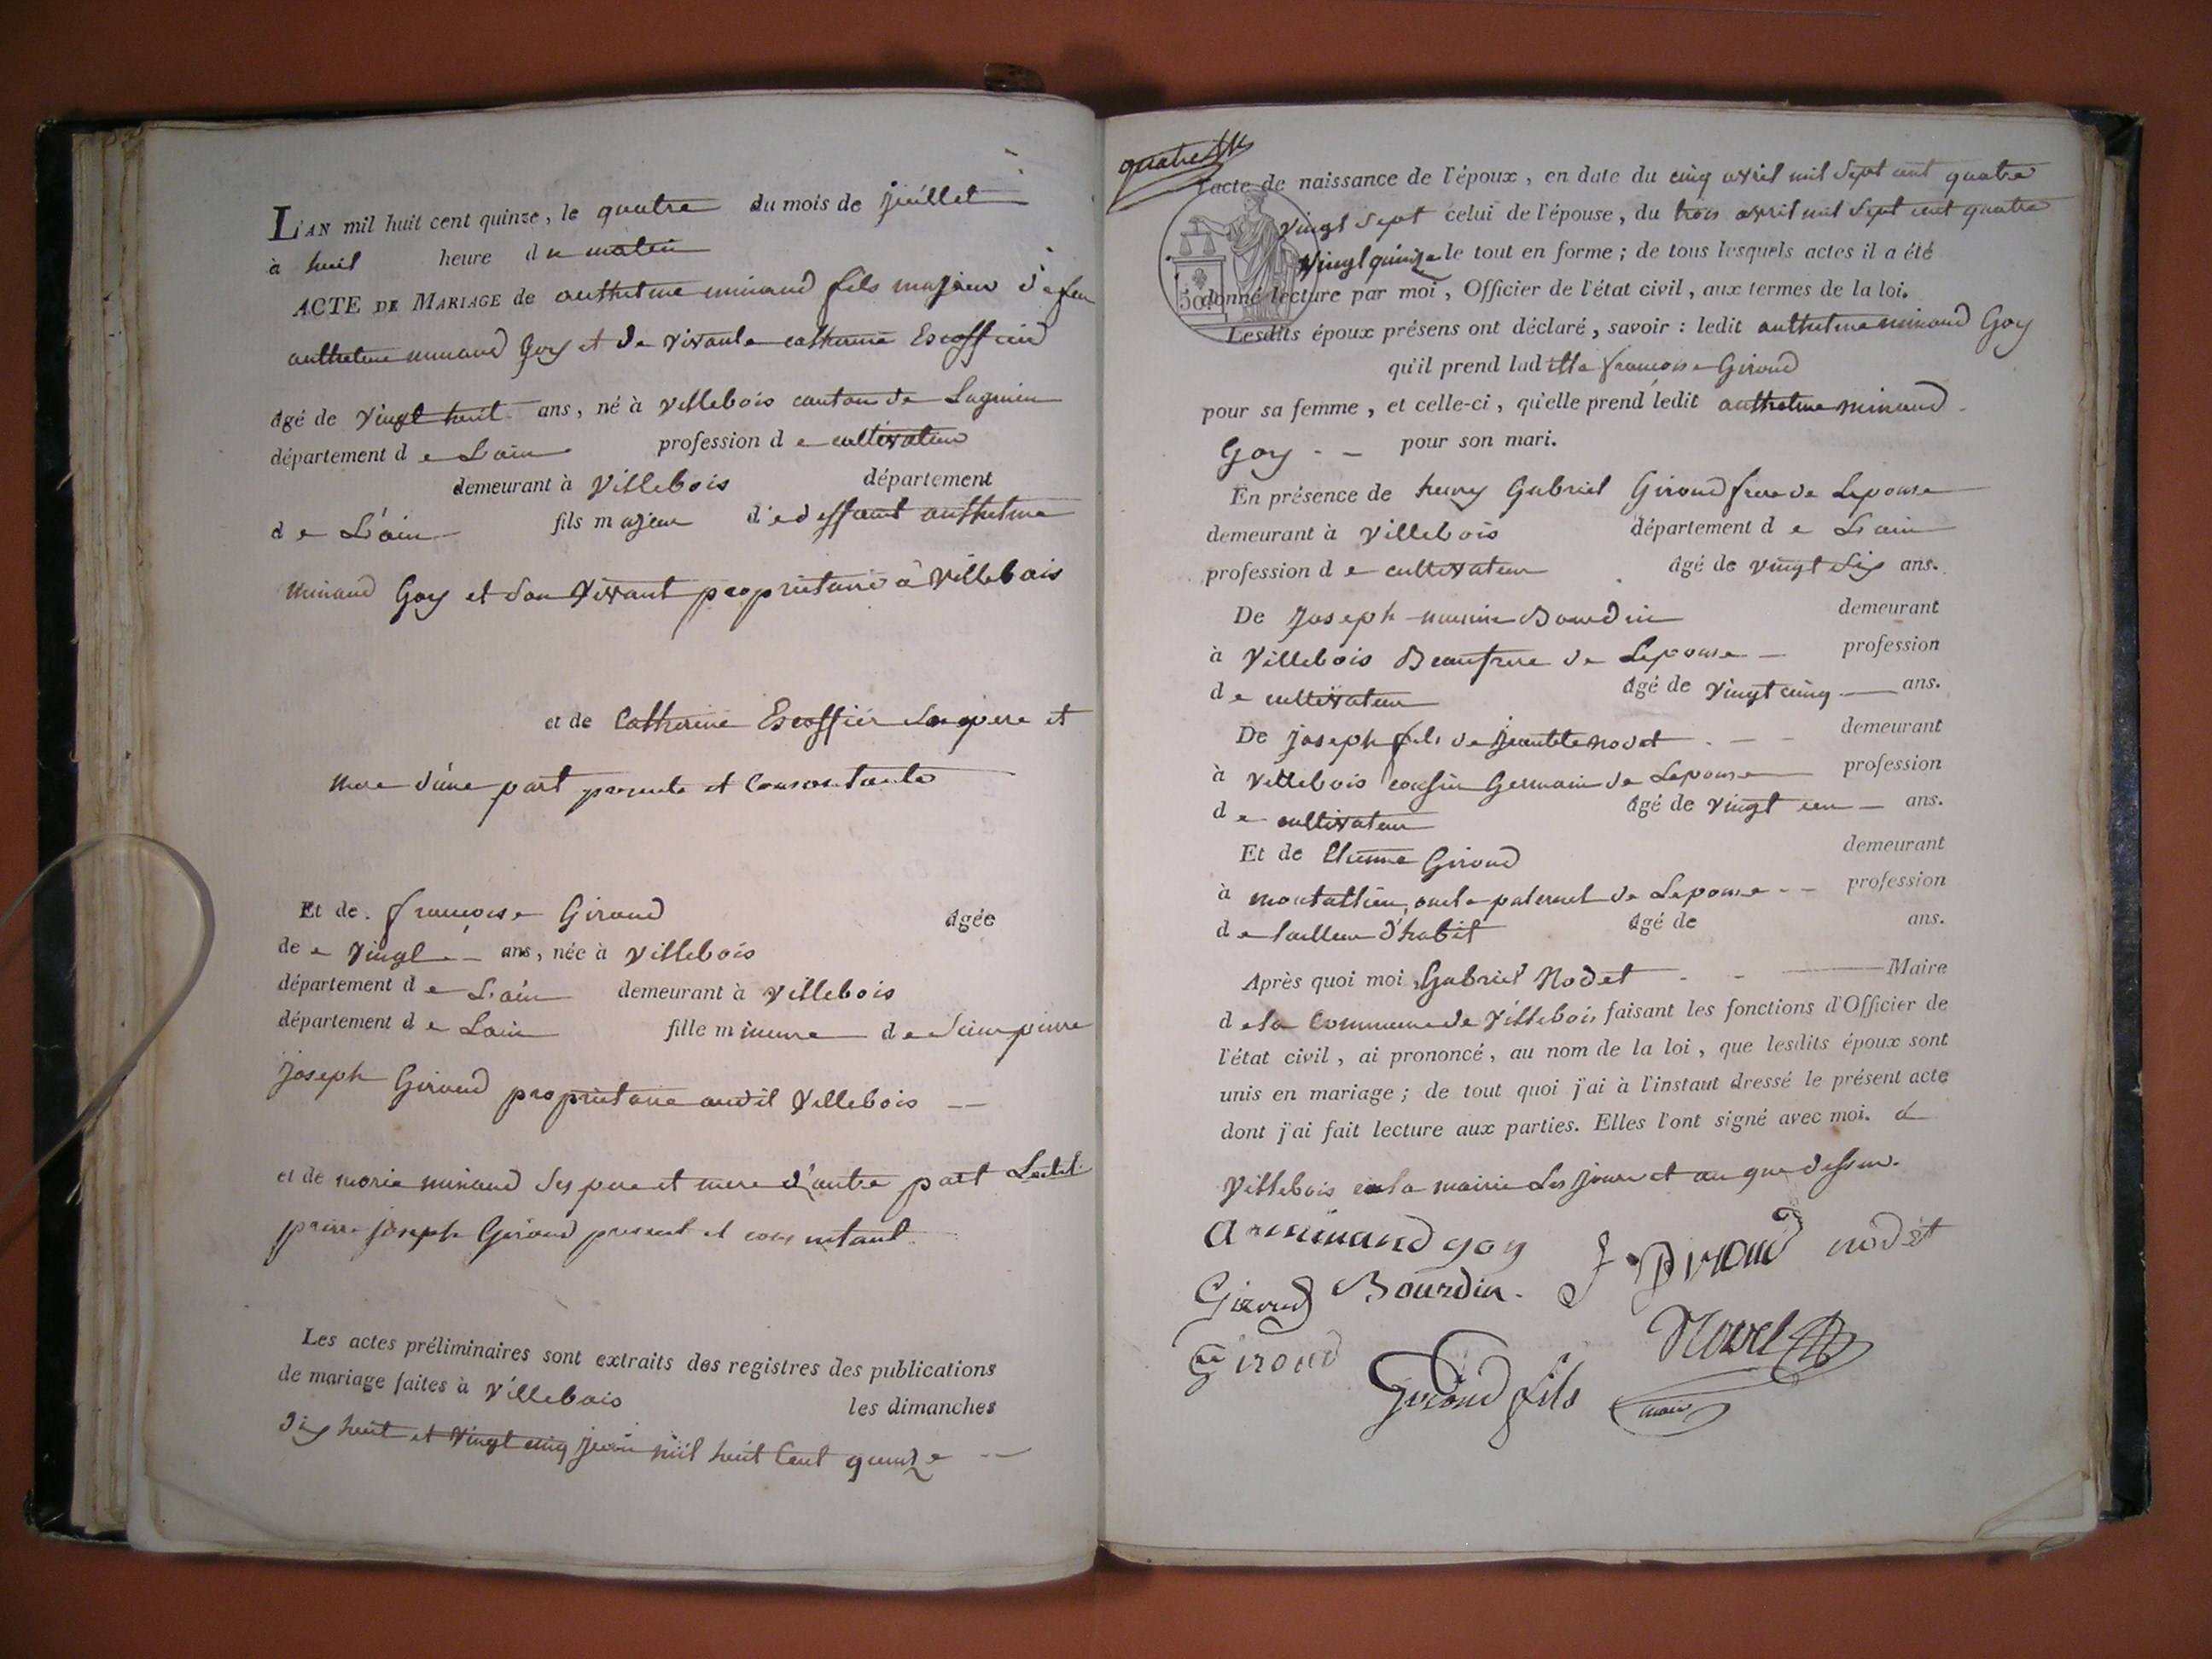 L'AN mil huit cent quinze, le quatre du mois de juillet
à huit heure du matin
ACTE DE MARIAGE de anthelme minand fils majeur de feu
anthelme minand Goy et de vivante catherine Escoffier
âgé de vingt huit ans, né à villebois canton de Lagnieu
département de L'ain profession de cultivateur
demeurant à Villebois département
de L'ain fils majeur de deffunt anthelme
minand Goy et son vivant propriétaire à Villebois
et de Catherine Escoffier ses pere et
mere d'une part presente et consentante
Et de françoise Giroud âgée
de vingt ans, née à villebois
département de L'ain demeurant à villebois
département de Lain fille mineure de Sieur pierre
joseph Giroud propriétaire audit Villebois
et de marie minand ses pere et mere d'autre part Ledit
pierre joseph Giroud present et consentant
Les actes préliminaires sont extraits des registres des publications
de mariage faites à Villebois les dimanches
dix huit et vingt cinq juin mil huit Cent quinze
quatre
l'acte de naissance de l'époux, en date du cinq avril mil sept cent quatre
vingt sept celui de l'épouse, du trois avril mil sept cent quatre
vingt quinze le tout en forme; de tous lesquels actes il a été
50 donné lecture par moi, Officier de l'état civil, aux termes de la loi.
Lesdits époux présens ont déclaré, savoir: ledit anthelme minand Goy
qu'il prend laditte françoise Giroud
pour sa femme, et celle-ci, qu'elle prend ledit anthelme minand
Goy pour son mari.
En présence de henry Gabriel Giroud frere de Lepouse
demeurant à Villebois département de L'ain
profession de cultivateur âgé de vingt six ans.
De Joseph marin Bourdin demeurant
à Villebois Beaufrere de Lepouse profession
de cultivateur âgé de vingt cinq ans.
De joseph fils de jean Bte nodet demeurant
à Villebois cousin Germain de Lepouse profession
de cultivateur âgé de vingt un ans.
Et de Etienne Giroud demeurant
à montallieu, oncle paternel de Lepouse profession
de tailleur d'habit âgé de ans.
Après quoi moi, Gabriel Nodet Maire
de la Commune de Villebois faisant les fonctions d'Officier de
l'état civil, ai prononcé, au nom de la loi, que lesdits époux sont
unis en mariage; de tout quoi j'ai à l'instant dressé le présent acte
dont j'ai fait lecture aux parties. Elles l'ont signé avec moi. à
Villebois en la mairie Les jour et an que dessus.
a minand goy J Giroud nodet
Giroud Bourdin.
Giroud Nodet
Giroud fils maire